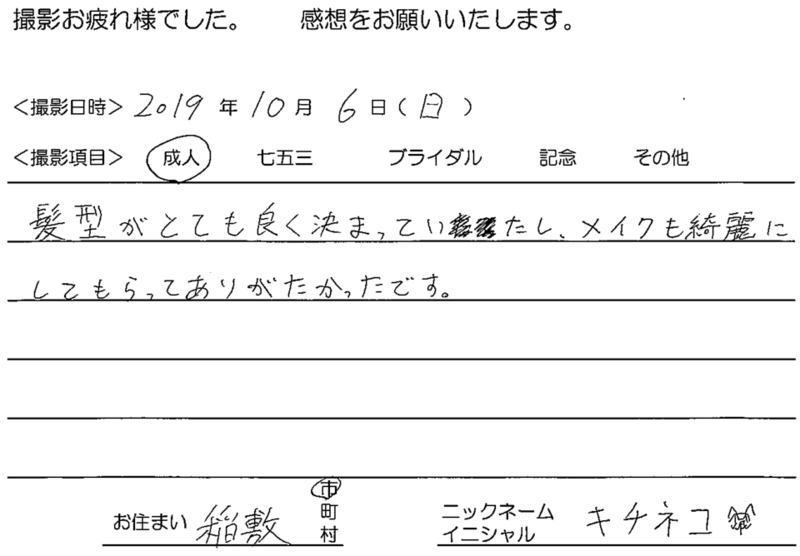 撮影お疲れ様でした。　　感想をお願いいたします。
＜撮影日時＞ 2019 年 10 月 6 日（日）
＜撮影項目＞ 成人　七五三　ブライダル　記念　その他
髪型がとても良く決まっていたし、メイクも綺麗に
してもらってありがたかったです。
お住まい 稲敷 市町村　ニックネーム イニシャル キチネコ